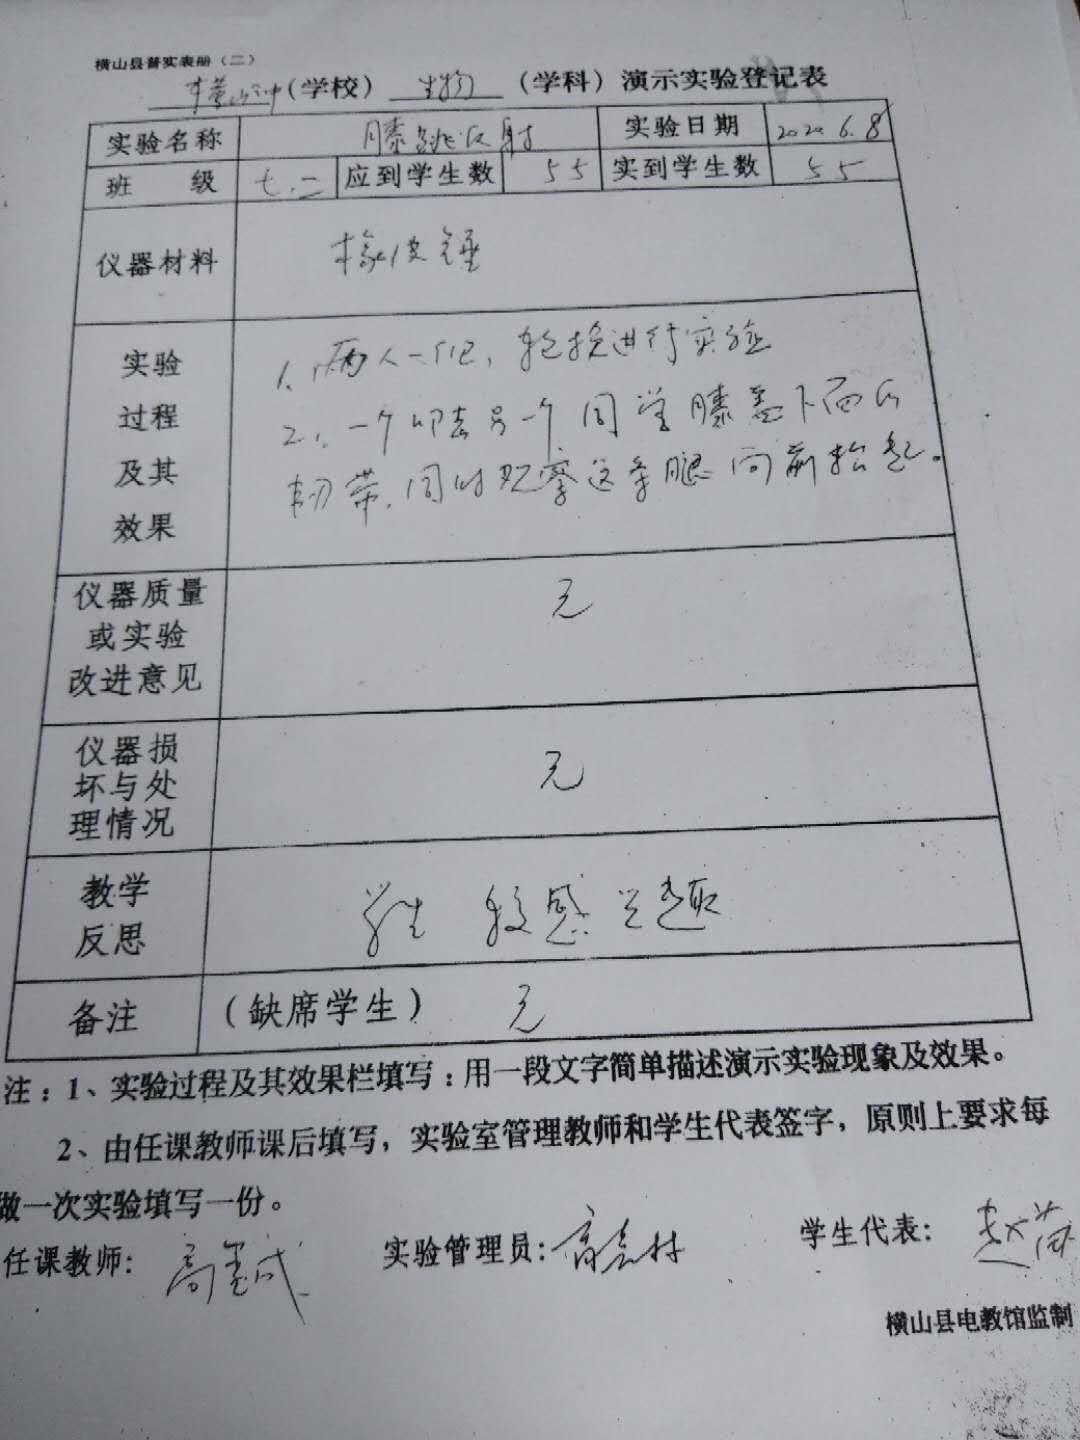 横山县普实表册（二）
（学校） 生物 （学科）演示实验登记表
实验名称 膝跳反射 实验日期 2020.6.8
班 级 七.二 应到学生数 55 实到学生数 55
仪器材料 橡皮锤
实验
过程
及其
效果
1、两人一组，轮换进行实验
2、一个叩击另一个同学膝盖下面的
韧带，同时观察这条腿向前抬起。
仪器质量
或实验
改进意见
无
仪器损
坏与处
理情况
无
教学
反思
学生 较感兴趣
备注 （缺席学生） 无
注：1、实验过程及其效果栏填写：用一段文字简单描述演示实验现象及效果。
2、由任课教师课后填写，实验室管理教师和学生代表签字，原则上要求每
做一次实验填写一份。
任课教师： 实验管理员： 学生代表：
横山县电教馆监制